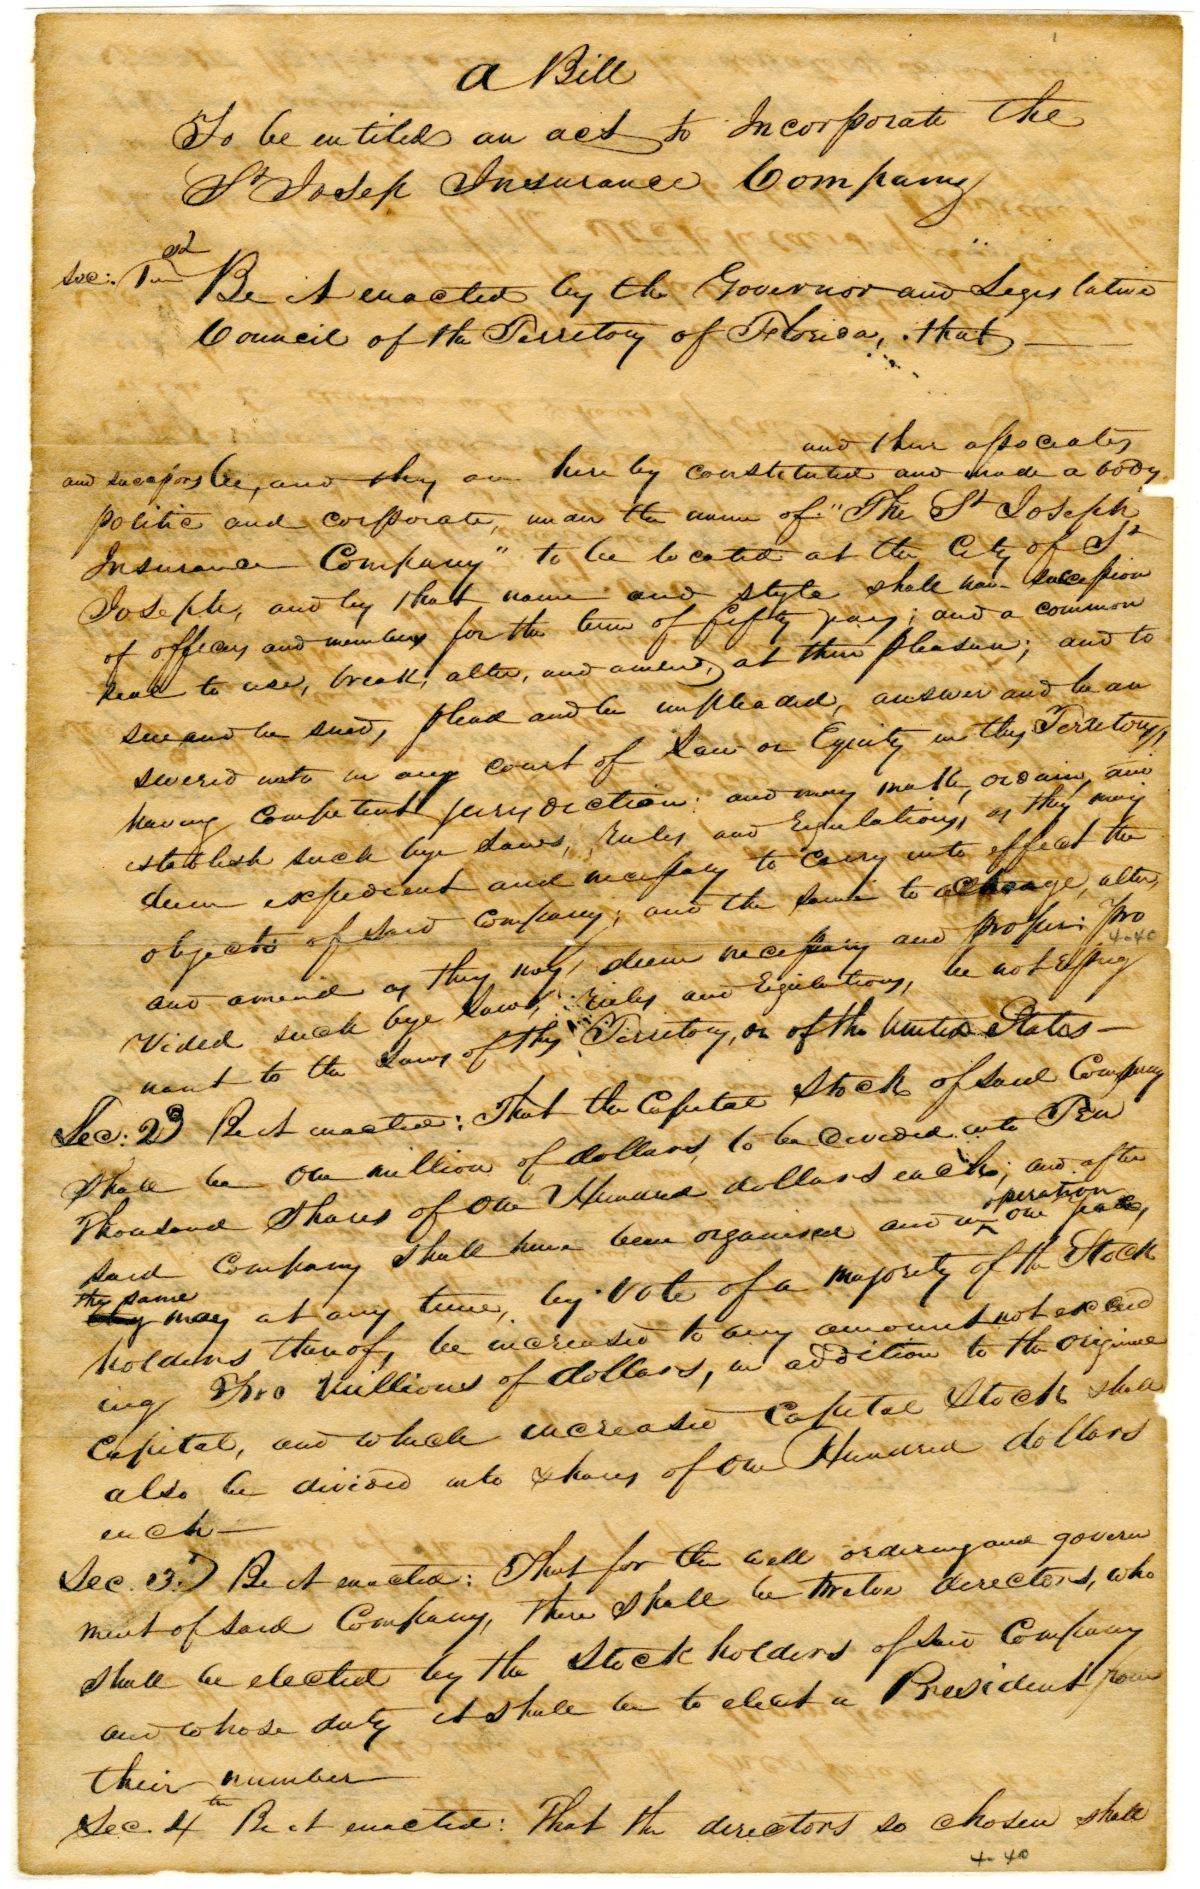 a Bill
To be entitled an act to Incorporate the
St Josep Insurance Company
Sec: 1st Be it enacted by the Governor and Legislative
Council of the Territory of Florida, that
and their associates
and successors be, and they are here by constituted and made a body
politic and corporate, under the name of "The St Joseph
Insurance Company" to be located at the City of St
Joseph, and by that name and style shall have succession
of officers and members for the term of fifty years; and a common
seal to use, break, alter, and amend, at their pleasure; and to
sue and be sued, plead and be impleaded, answer and be an
swered unto in any court of Law or Equity in this Territory,
having competent jurisdiction: and may make, ordain, and
establish such bye Laws, Rules and Regulations, as they may
deem expedient and necessary to carry into effect the
objects of said Company; and the same to change, alter,
and amend as they may deem necessary and proper: Pro
4-40
vided such bye Laws, Rules and Regulations, be not repug
nant to the Laws of this Territory, or of the United States—
Sec: 2d Be it enacted: That the Capital Stock of said Company
shall be One million of dollars, to be divided into Ten
Thousand Shares of One Hundred dollars each; and after
said Company shall have been organised and in operation one year,
the same may at any time, by vote of a majority of the Stock
holders thereof, be increased to any amount not exceed
ing Two Millions of dollars, in addition to the original
Capital, and which increased Capital Stock shall
also be divided into shares of One Hundred dollars
each—
Sec. 3d Be it enacted: That for the well ordering and govern
ment of said Company, there shall be twelve directors, who
shall be elected by the Stock holders of said Company
and whose duty it shall be to elect a President from
their number
Sec. 4th Be it enacted: That the directors so chosen shall
4-40